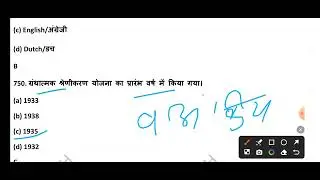 (c) English/अंग्रेजी
(d) Dutch/डच
B
750. संधात्मक श्रेणीकरण योजना का प्रारंभ वर्ष में किया गया।
(a) 1933
(b) 1938
(c) 1935
(d) 1932